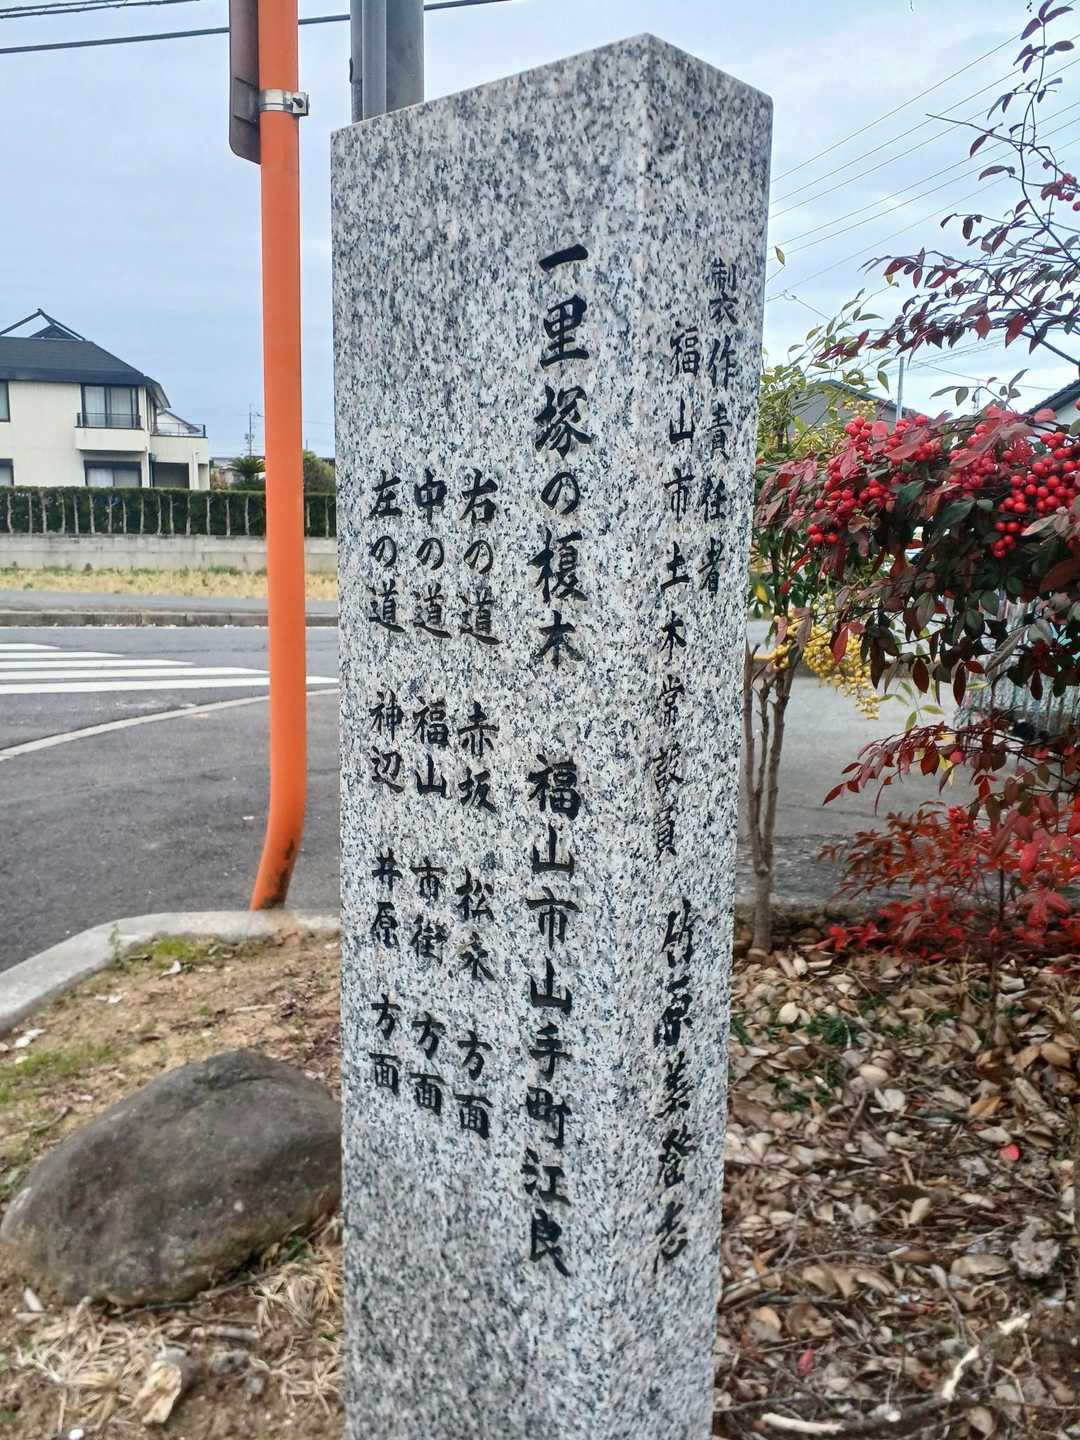 製作責任者
福山市土木常設員 竹原美登志
一里塚の榎木 福山市山手町江良
右の道 赤坂 松永 方面
中の道 福山 市街 方面
左の道 神辺 井原 方面